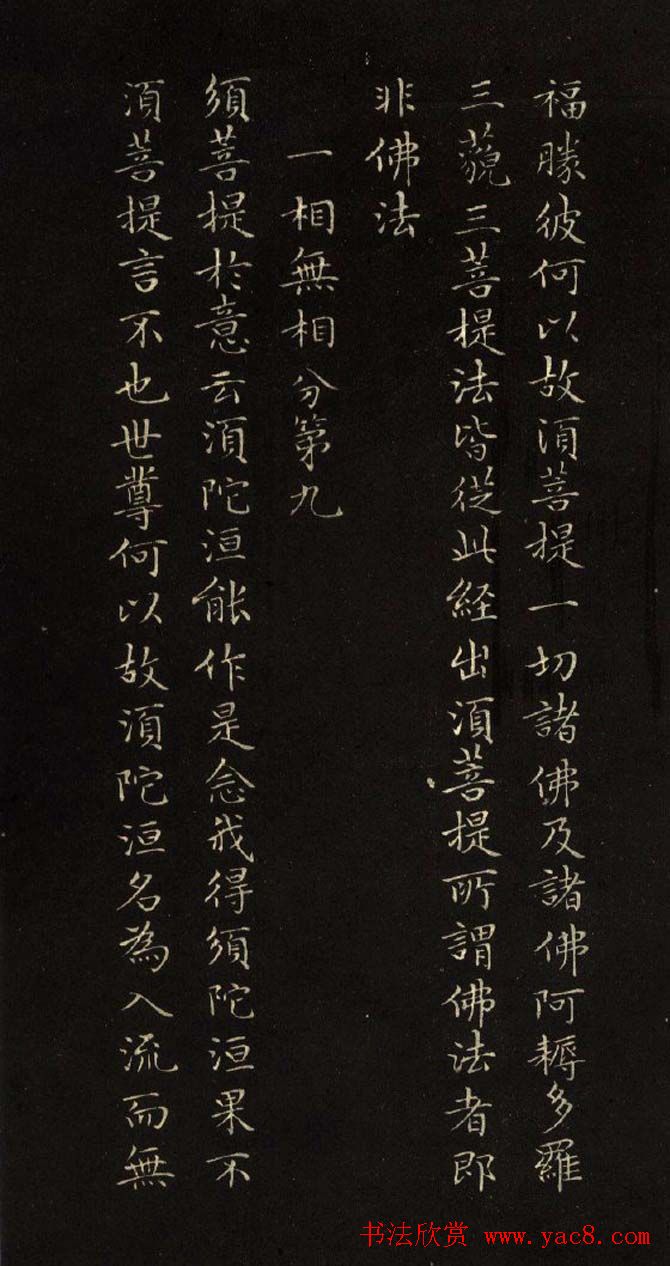 福勝彼何以故須菩提一切諸佛及諸佛阿耨多羅
三藐三菩提法皆從此経出須菩提所謂佛法者即
非佛法
一相無相分第九
須菩提於意云須陀洹能作是念我得須陀洹果不
須菩提言不也世尊何以故須陀洹名為入流而無
书法欣赏 www.yac8.com